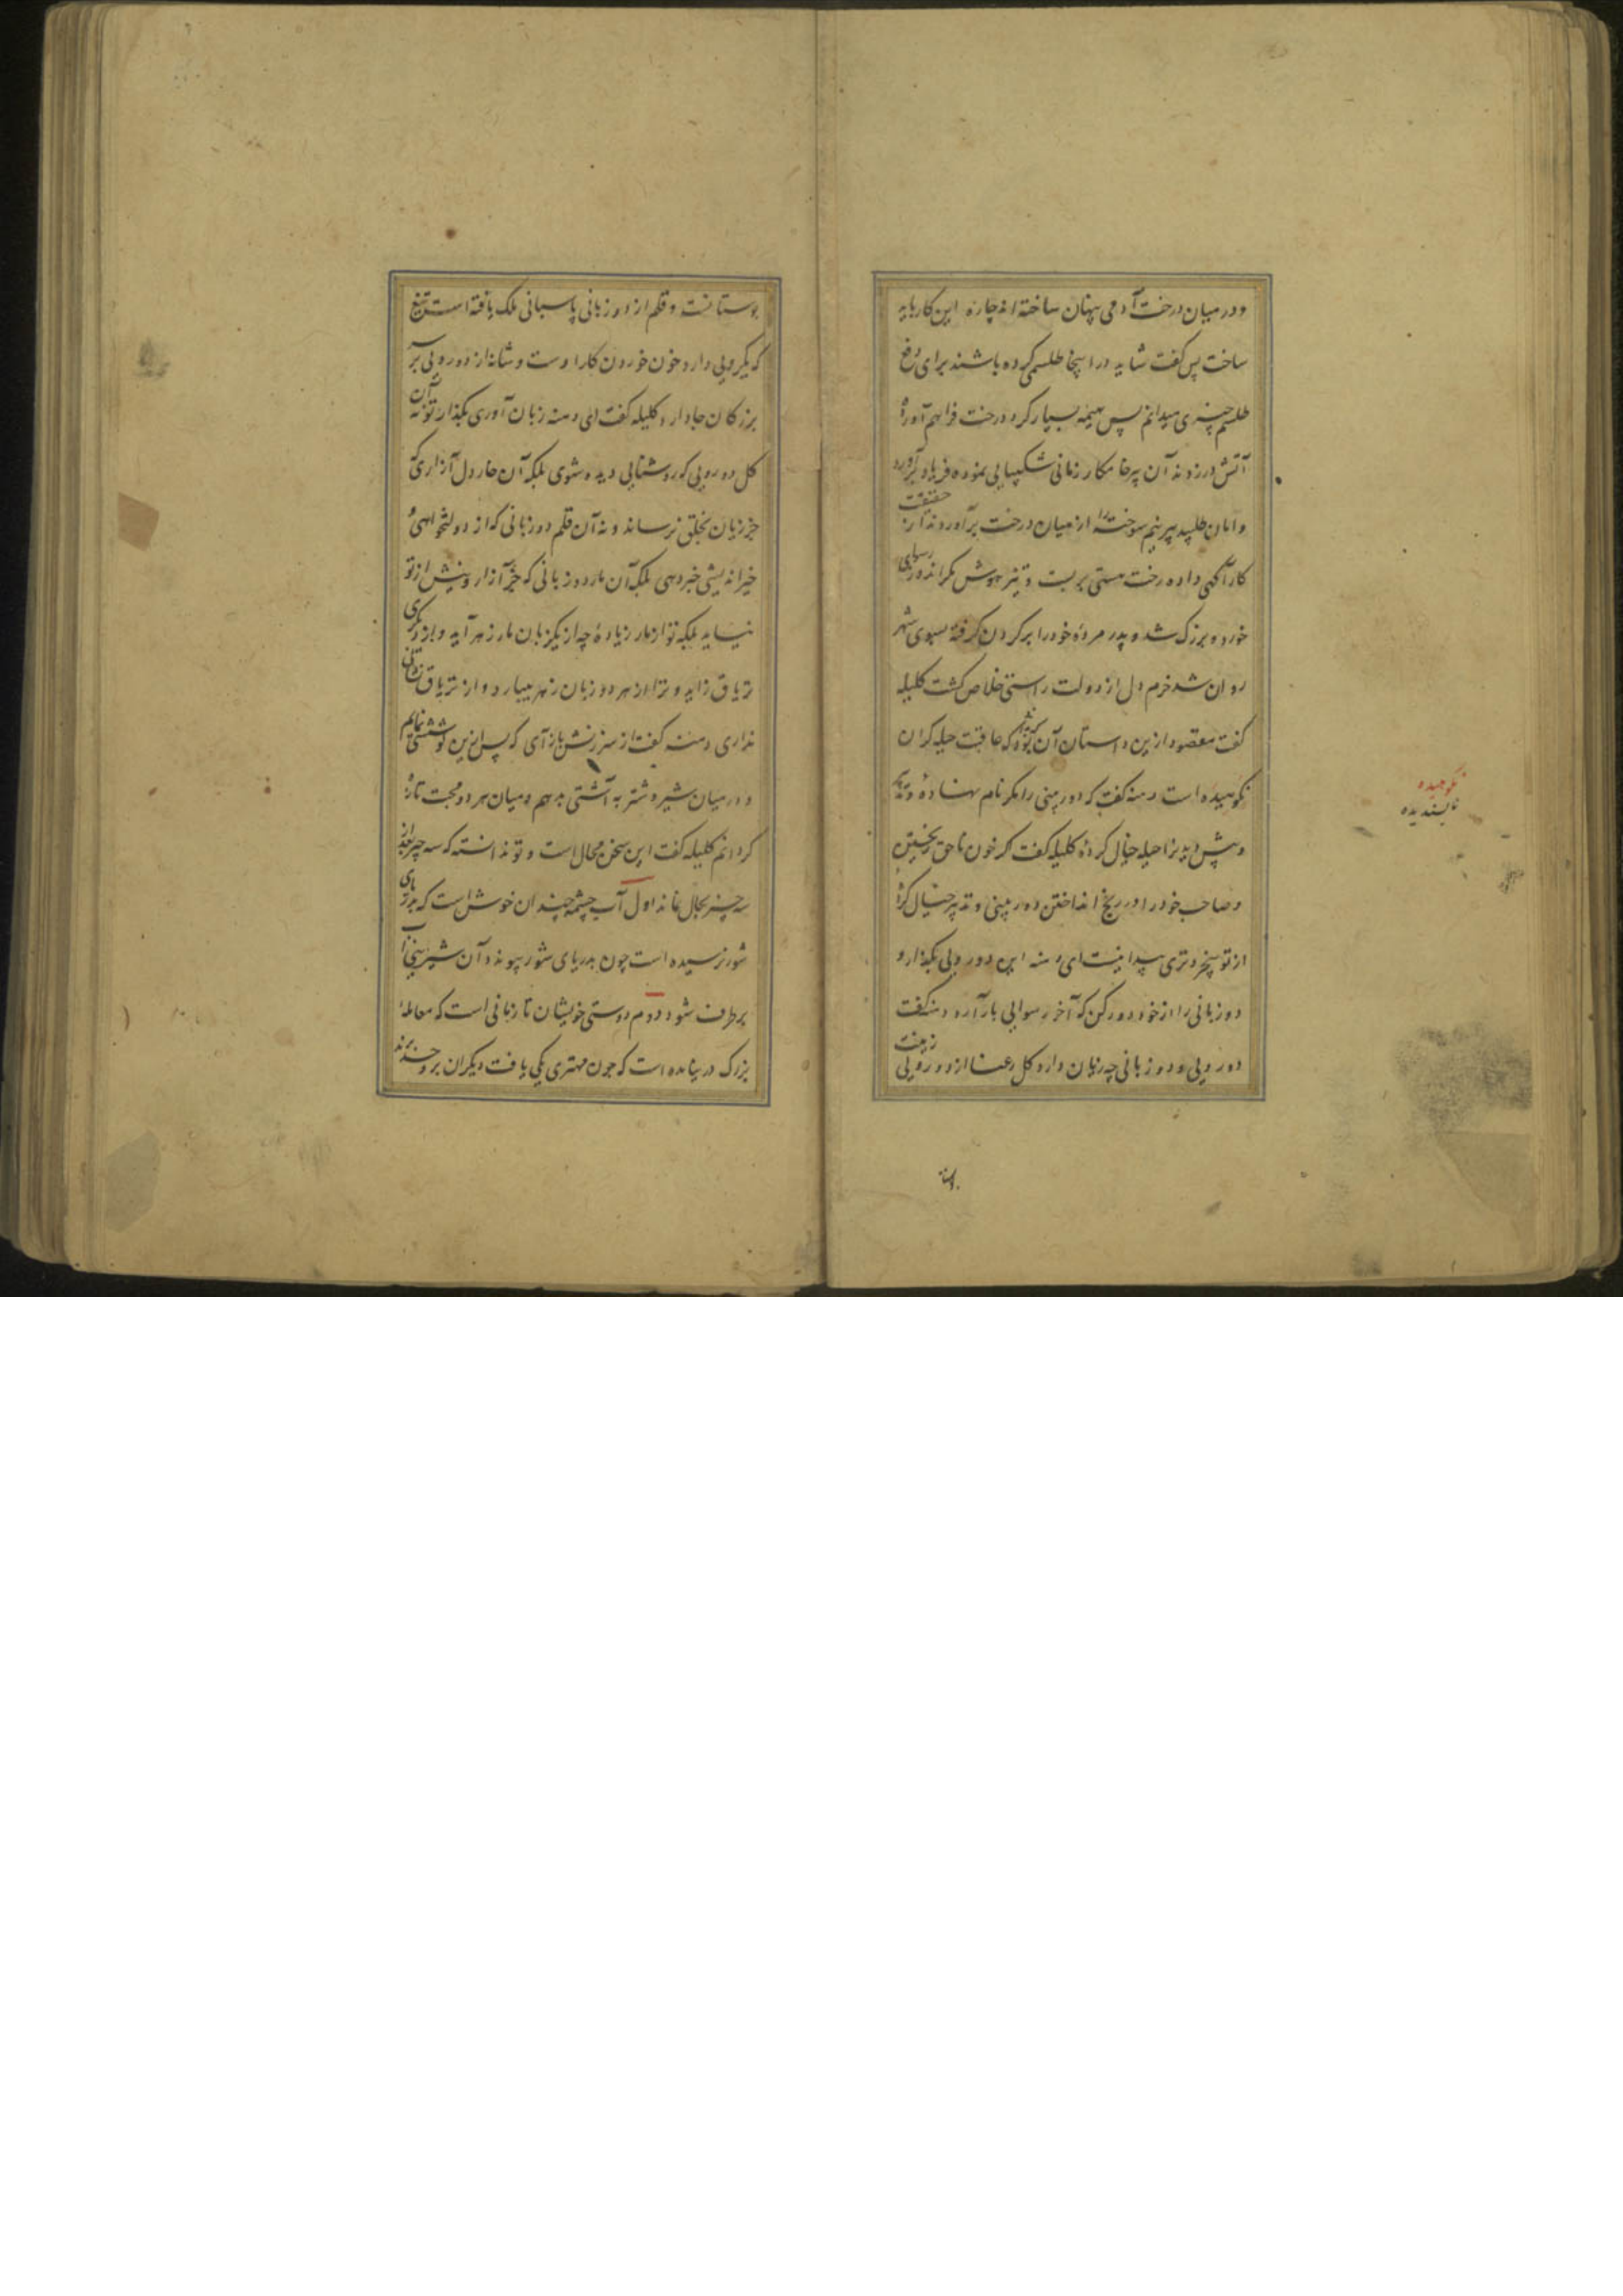 و در میان درخت آدمی پنهان ساخته اند چاره این کار باید
ساخت پس گفت شاید در اینجا طلسمی کرده باشند برای دفع
طلسم چیزی میدانم پس هیمه بسیار کرد درخت فراهم آورده
آتش در زدند آن پیر خام کار زمانی شکیبایی نموده فریاد برآورد
و امان طلبید پیر نیم سوخته را از میان درخت برآوردند از حقیقت
کار آگهی داده رخت هستی بربست و تیز هوش مکر اندوز رسوای
خورد و بزرگ شد و پدر مرده خود را بر گردن گرفته بسوی شهر
روان شد خرم دل از دولت راستی خلاص گشت کلیله
گفت مقصود ازین داستان آن بود که عاقبت حیله گران
نکوهیده است دمنه گفت که دوربینی را مکر نام نهاده و تدبیر
حیله خیال کرده کلیله گفت که خون ناحق ریختن
و صاحب خود را در رنج انداختن دوربینی و تدبیر خیال کرده
از تو بیخردتری پیدا نیست ای دمنه این دورویی بگذار و
دو زبانی را از خود دور کن که آخر رسوایی بار آرد دمنه گفت
دورویی و دو زبانی چه زیان دارد گل رعنا از دورویی زینت
نکوهیده
ناپسندیده
بوستانست و قلم از دو زبانی پاسبانی ملک یافته است تیغ
که یکرویی دارد خون خوردن کار اوست و شانه از دورویی بر سر
بزرگان جا دارد کلیله گفت ای دمنه زبان آوری بگذار تو نه آن
گل دورویی که روشنایی دیده شوی بلکه آن خار دل آزاری که
جز زیان بخلق نرساند و نه آن قلم دو زبانی که از دولتخواهی و
خیراندیشی خبر دهی بلکه آن مار دو زبانی که جز آزار و نیش از تو
نیاید بلکه تو از مار زیاده چه از یکزبان مار زهر آید و از دیگری
تریاق زاید و ترا از هر دو زبان زهر میبارد و از تریاق نشانی
نداری دمنه گفت از سرزنش باز آی که پس ازین کوششی نمایم
و در میان شیر و شتربه آشتی دهم و میان هر دو محبت تازه
گردانم کلیله گفت این سخن محال است و تو ندانسته که سه چیز بعد از
سه چیز بحال نماند اول آب چشمه چندان خوش است که بدریای
شور نرسیده است چون بدریای شور پیوندد آن شیرینی آب
برطرف شود دوم دوستی خویشان تا زمانی است که معامله
بزرگ در میان نیامده است که چون مهتری یکی یافت دیگران برو حسد برند